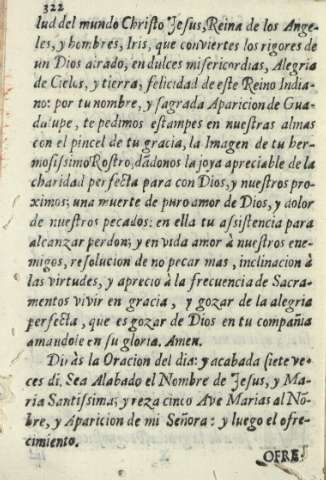 322
lud del mundo Christo Jesus, Reina de los Ange-
les, y hombres, Iris, que conviertes los rigores de
un Dios airado, en dulces misericordias, Alegria
de Cielos, y tierra, felicidad de este Reino India-
no: por tu nombre, y sagrada Aparicion de Gua-
dalupe, te pedimos estampes en nuestras almas
con el pincel de tu gracia, la Imagen de tu her-
mosissimo Rostro, dadonos la joya apreciable de la
charidad perfecta para con Dios, y nuestros pro-
ximos; una muerte de puro amor de Dios, y dolor
de nuestros pecados: en ella tu assistencia para
alcanzar perdon; y en vida amor à nuestros ene-
migos, resolucion de no pecar mas, inclinacion à
las virtudes, y aprecio à la frecuencia de Sacra-
mentos vivir en gracia, y gozar de la alegria
perfecta, que es gozar de Dios en tu compañia
amandole en su gloria. Amen.
Diràs la Oracion del dia: y acabada siete ve-
ces di. Sea Alabado el Nombre de Jesus, y Ma-
ria Santissima; y reza cinco Ave Marias al Nõ-
bre, y Aparicion de mi Señora: y luego el ofre-
cimiento.
OFRE-